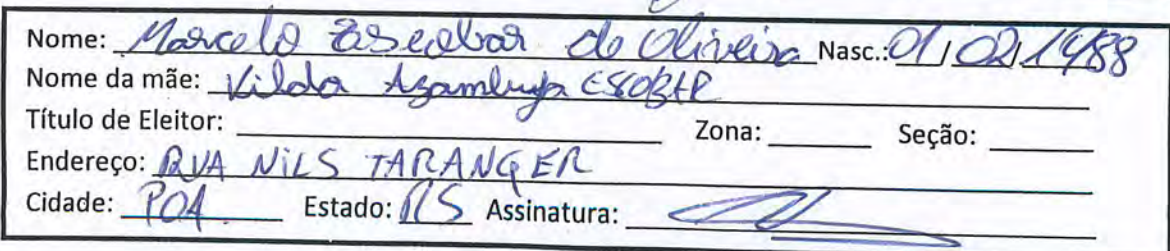 Nome: Marcelo Escobar de Oliveira Nasc.: 01/02/1988
Nome da mãe: Vilda Azambuja ESCOBAR
Título de Eleitor: Zona: Seção:
Endereço: RUA NILS TARANGER
Cidade: POA. Estado: RS Assinatura: